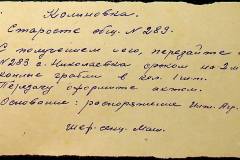 Калиновка.
Старосте общ. N 283.
С получением сего, передайте
N 283 с. Николаевка сроком на 2
конные грабли в кол. 1 шт.
Передачу оформите актом.
Основание: распоряжение